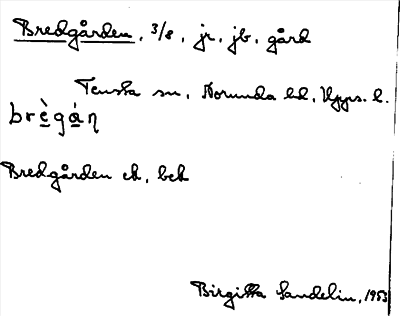 Bredgården, 3/8, jr, jb, gård
Tensta sn, Norunda hd, Upps. l.
brègán
Bredgården ek, bek
Birgitta Sandelin, 1953